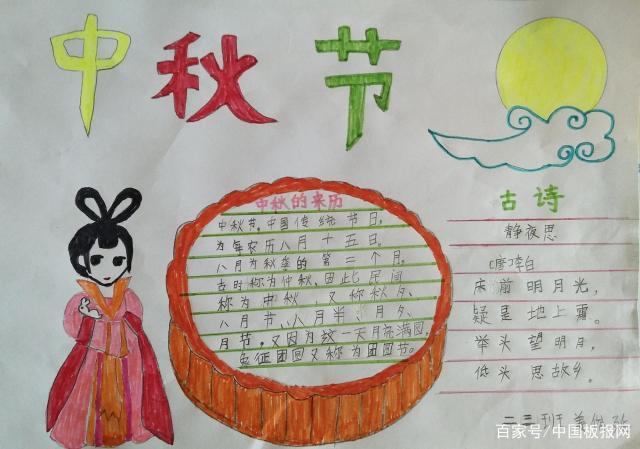 中秋节
中秋的来历
中秋节,中国传统节日,
为每年农历八月十五日。
八月为秋季的第二个月。
古时称为仲秋,因此民间
称为中秋,又称秋夕、
八月节、八月半、月夕、
月节,又因为这一天月亮满圆,
象征团圆又称为团圆节。
古诗
静夜思
唐 李白
床前明月光,
疑是地上霜。
举头望明月,
低头思故乡。
二三班
百家号/中国板报网